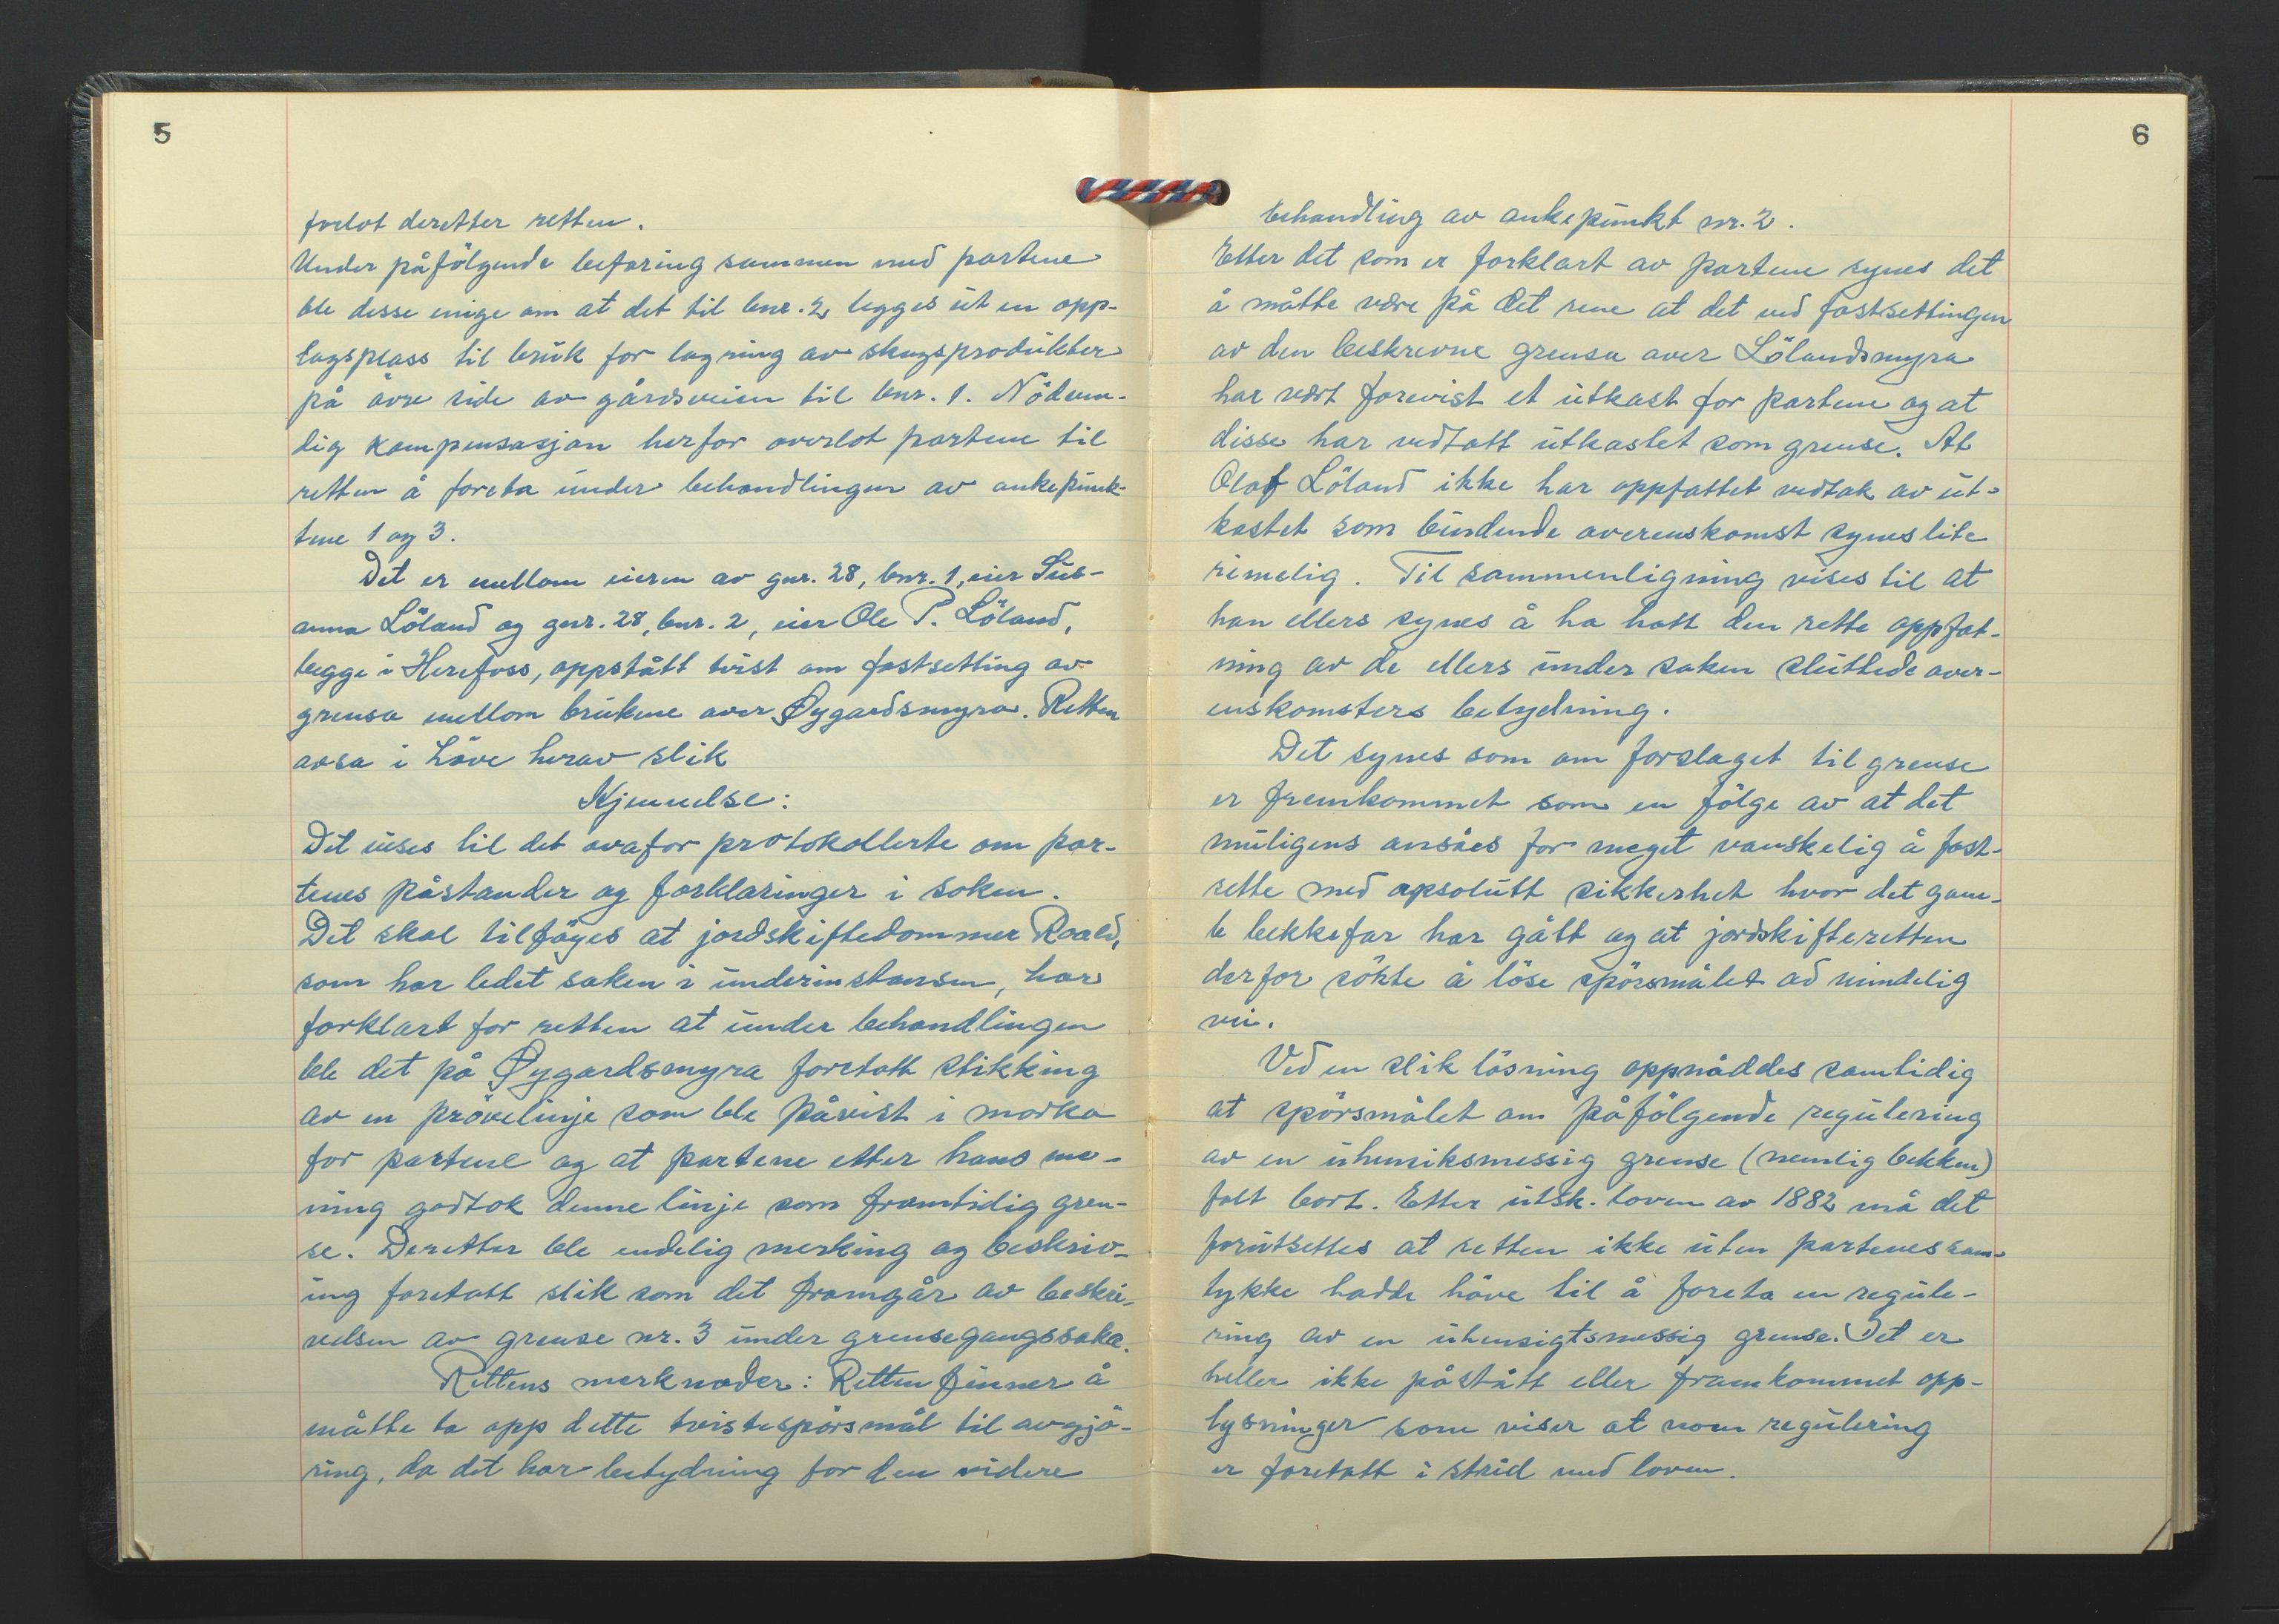 5
forlot deretter retten.
Under påfölgende befaring sammen med partene
ble disse enige om at det til bnr. 2 legges ut en opp-
lagsplass til bruk for lagring av skogsprodukter
på övre side av gårdsveien til bnr. 1. Nödven-
dig kompensasjon herfor overlot partene til
retten å foreta under behandlingen av ankepunk-
tene 1 og 3.
Det er mellom eieren av gnr. 28, bnr. 1, eier Sus-
anna Löland og gnr. 28, bnr. 2, eier Ole P. Löland,
begge i Herefoss, oppstått tvist om fastsetting av
grensa mellom brukene over Øygardsmyra. Retten
avsa i höve herav slik
Kjennelse:
Det vises til det ovafor protokollerte om par-
tenes påstander og forklaringer i saken.
Det skal tilföyes at jordskiftedommer Roald,
som har ledet saken i underinstansen, har
forklart for retten at under behandlingen
ble det på Øygardsmyra foretatt stikking
av en prövelinje som ble påvist i marka
for partene og at partene etter hans me-
ning godtok denne linje som framtidig gren-
se. Deretter ble endelig merking og beskriv-
ing foretatt slik som det framgår av beskri-
velsen av grense nr. 3 under grensegangssaka.
Rettens merknader: Retten finner å
måtte ta opp dette tvistespörsmål til avgjö-
ring, da det har betydning for den videre
6
behandling av ankepunkt nr. 2.
Etter det som er forklart av partene synes det
å måtte være på det rene at det ved fastsettingen
av den beskrevne grensa over Lölandsmyra
har vært forevist et utkast for partene og at
disse har vedtatt utkastet som grense. At
Olaf Löland ikke har oppfattet vedtak av ut-
kastet som bindende overenskomst synes lite
rimelig. Til sammenligning vises til at
han ellers synes å ha hatt den rette oppfat-
ning av de ellers under saken sluttede over-
enskomsters betydning.
Det synes som om forslaget til grense
er fremkommet som en fölge av at det
muligens ansåes for meget vanskelig å fast-
sette med apsolutt sikkerhet hvor det gam-
le bekkefar har gått og at jordskifteretten
derfor sökte å löse spörsmålet ad mindelig
vei.
Ved en slik lösning oppnåddes samtidig
at spörsmålet om påfölgende regulering
av en uhensiksmessig grense (nemlig bekken)
falt bort. Etter utsk. loven av 1882 må det
forutsettes at retten ikke uten partenes sam-
tykke hadde höve til å foreta en regule-
ring av en uhensigtsmessig grense. Det er
heller ikke påstått eller framkommet opp-
lysninger som viser at noen regulering
er foretatt i strid med loven.